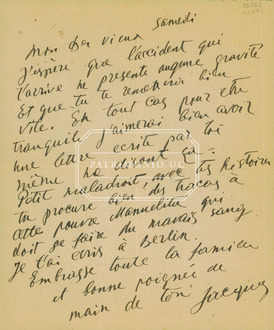 samedi
mon cher vieux
J'espère que l'accident qui
t'arrive ne présente aucune gravité
Et que tu te remettras bien
vite. En tout cas pour être
tranquille j'aimerai bien avoir
une lettre écrite par toi
même me disant
Petit maladroit avec tes histoires
tu procures bien des tracas à
cette pauvre Manuelita qui
doit se faire du mauvais sang
Je t'ai écris à Berlin.
Embrasse toute la famille
et bonne poignée de
main de ton Jacques